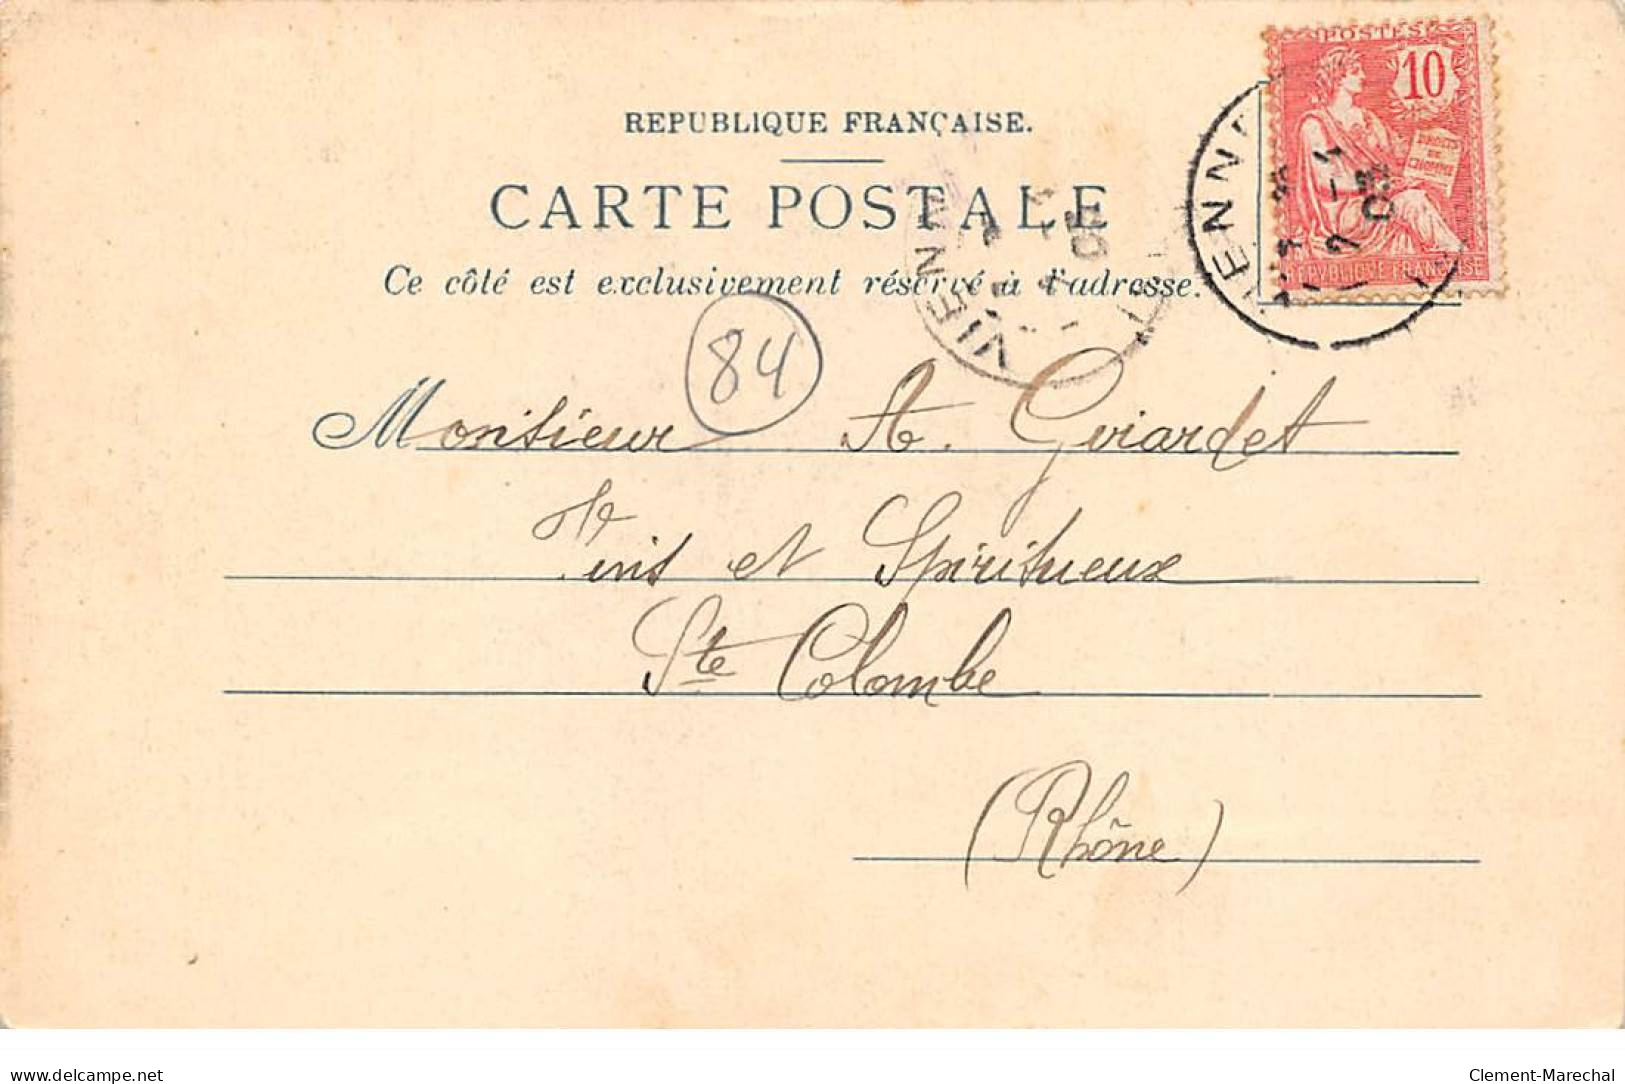 POSTES
10
DROITS
DE
L'HOMME
REPUBLIQUE FRANÇAISE
REPUBLIQUE FRANÇAISE.
CARTE POSTALE
Ce côté est exclusivement réservé à l'adresse.
VIENNE
03
VIENNE
03
84
Monsieur A. Girardet
Vins et Spiritueux
Ste Colombe
(Rhône)
delcampe.net
Clement-Marechal